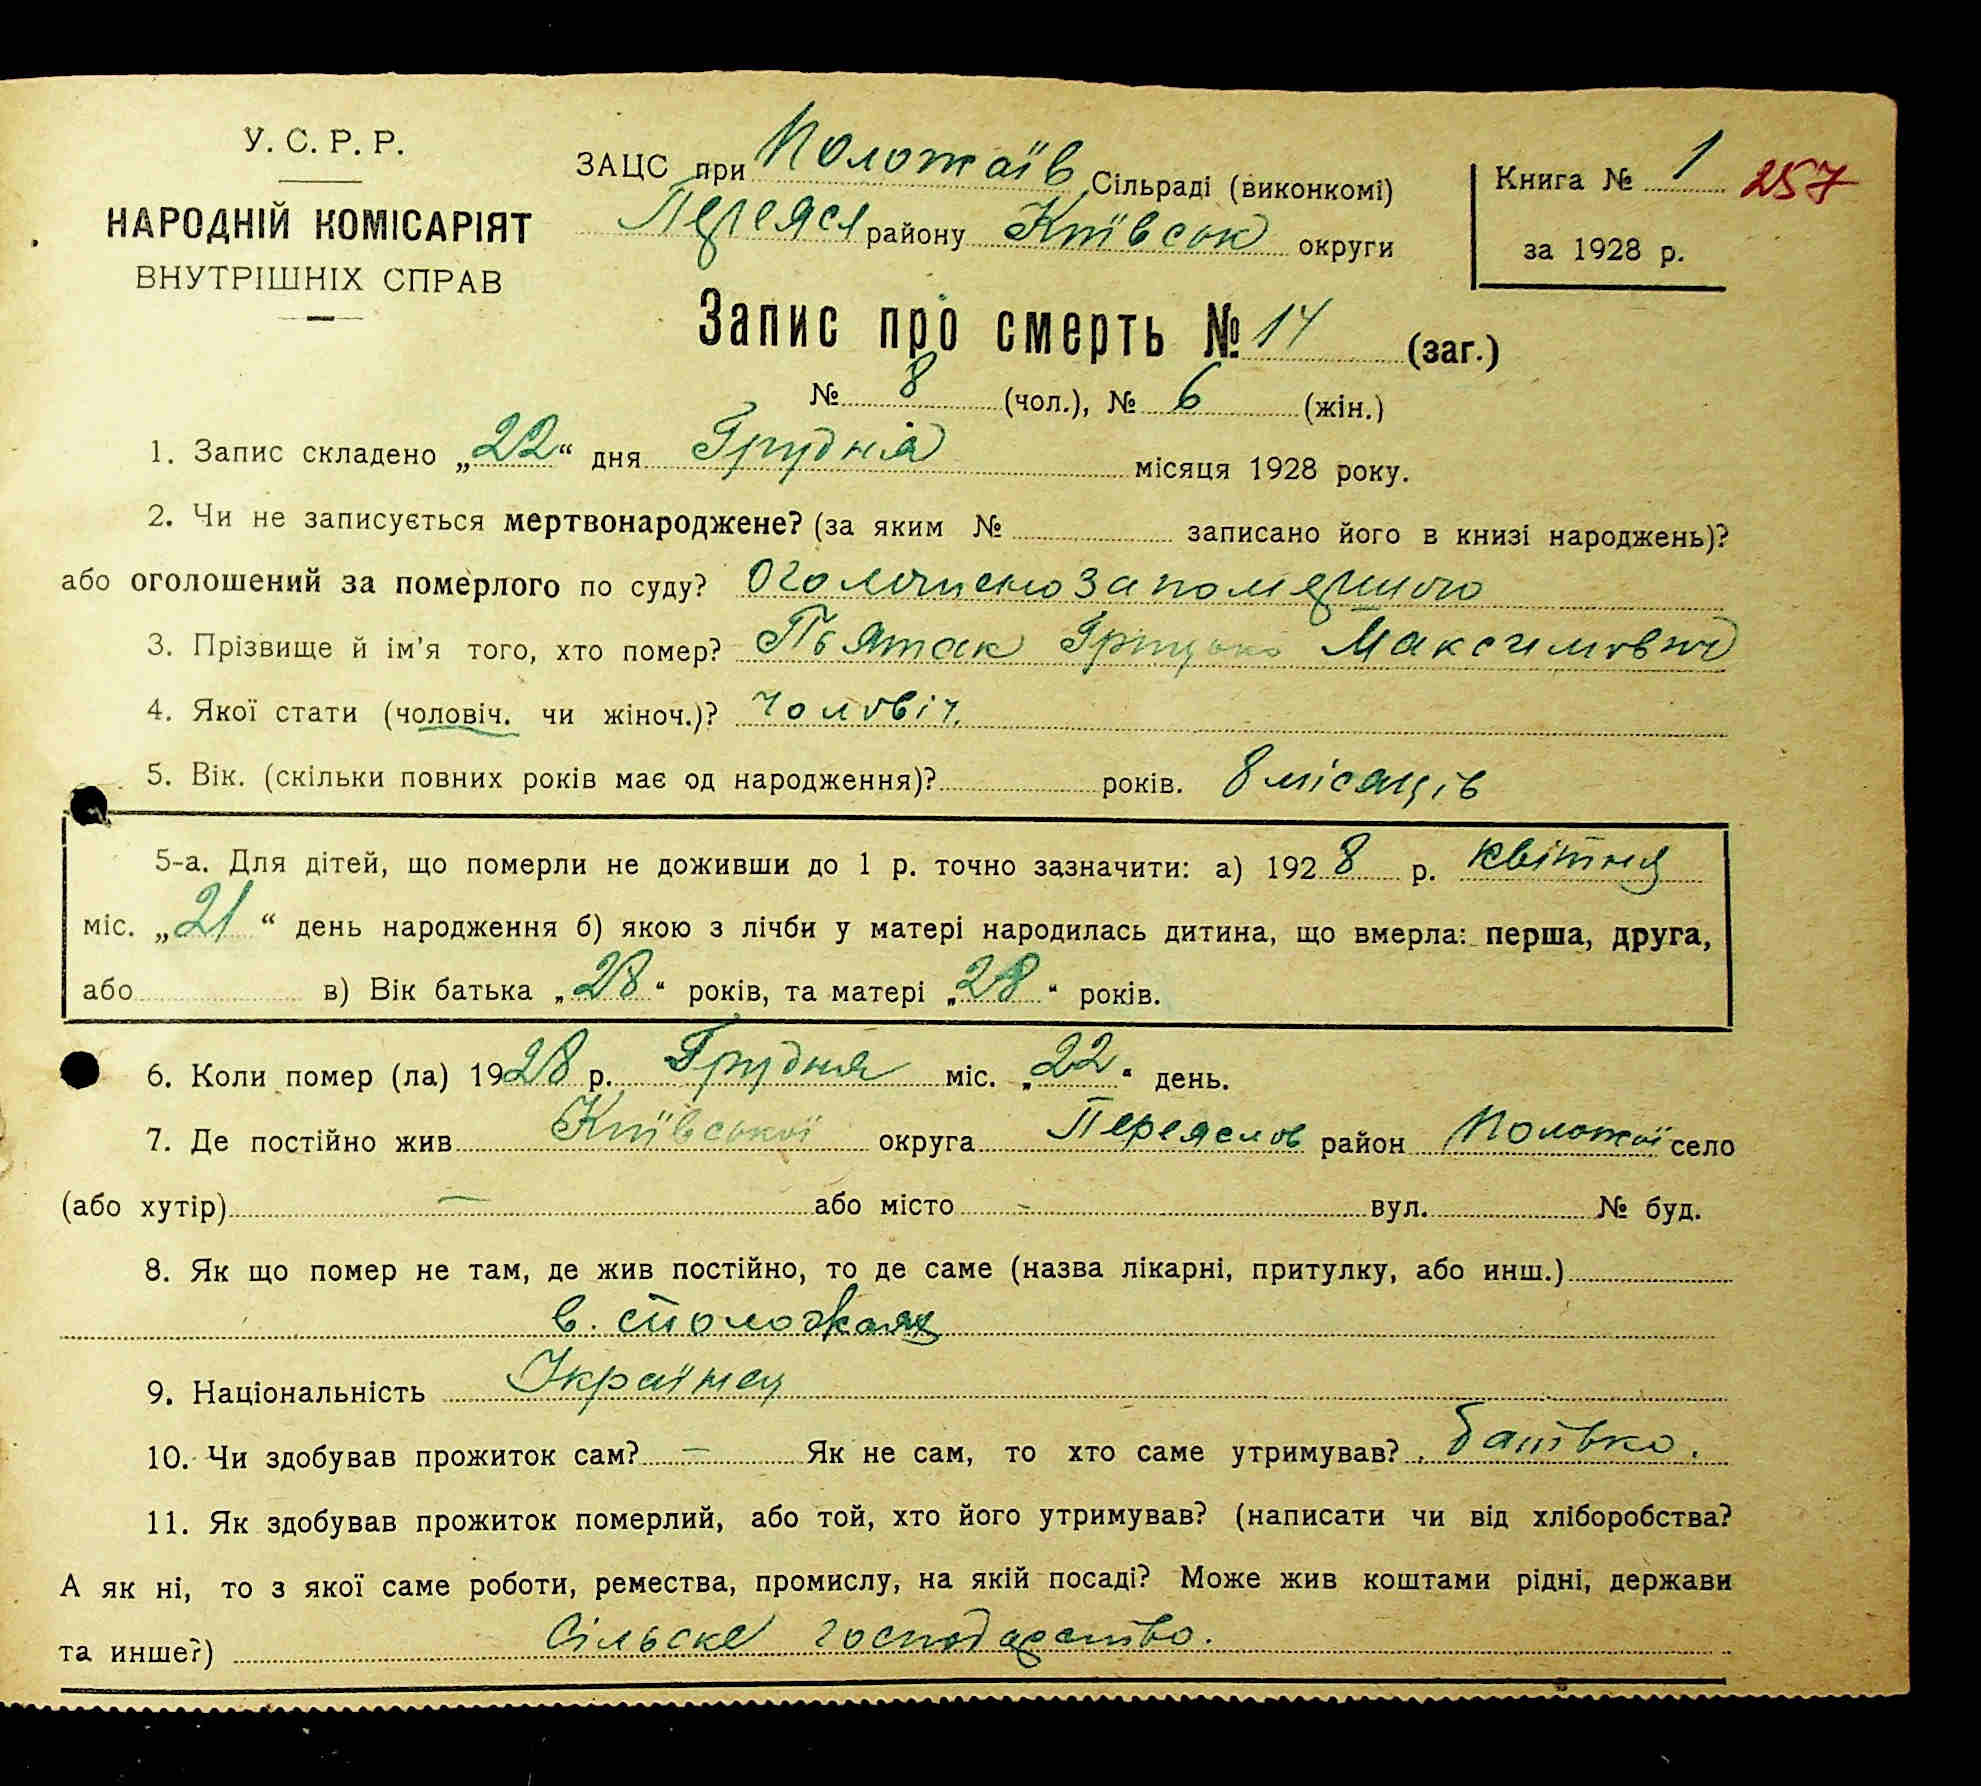 У. С. Р. Р.
НАРОДНІЙ КОМІСАРІЯТ
ВНУТРІШНІХ СПРАВ
ЗАЦС при Положаїв Сільраді (виконкомі)
Переясл району Київськ округи
Книга № 1 257
за 1928 р.
Запис про смерть № 14 (заг.)
№ 8 (чол.), № 6 (жін.)
1. Запис складено „22“ дня Грудня місяця 1928 року.
2. Чи не записується мертвонароджене? (за яким № записано його в книзі народжень)?
або оголошений за померлого по суду? Оголошено за помершого
3. Прізвище й ім'я того, хто помер? Пьятак Грицько Максимович
4. Якої стати (чоловіч. чи жіноч.)? чоловіч.
5. Вік. (скільки повних років має од народження)? років. 8 місяців
5-а. Для дітей, що померли не доживши до 1 р. точно зазначити: а) 1928 р. квітня
міс. „21“ день народження б) якою з лічби у матері народилась дитина, що вмерла: перша, друга,
або в) Вік батька „28“ років, та матері „28“ років.
6. Коли помер (ла) 1928 р. Грудня міс. „22“ день.
7. Де постійно жив Київської округа Переяслов район Положаї село
(або хутір) — або місто - вул. № буд.
8. Як що помер не там, де жив постійно, то де саме (назва лікарні, притулку, або инш.)
в. с. Положаях
9. Національність Українец
10. Чи здобував прожиток сам? — Як не сам, то хто саме утримував? батько.
11. Як здобував прожиток померлий, або той, хто його утримував? (написати чи від хліборобства?
А як ні, то з якої саме роботи, ремества, промислу, на якій посаді? Може жив коштами рідні, держави
та инше?) Сільске господарство.